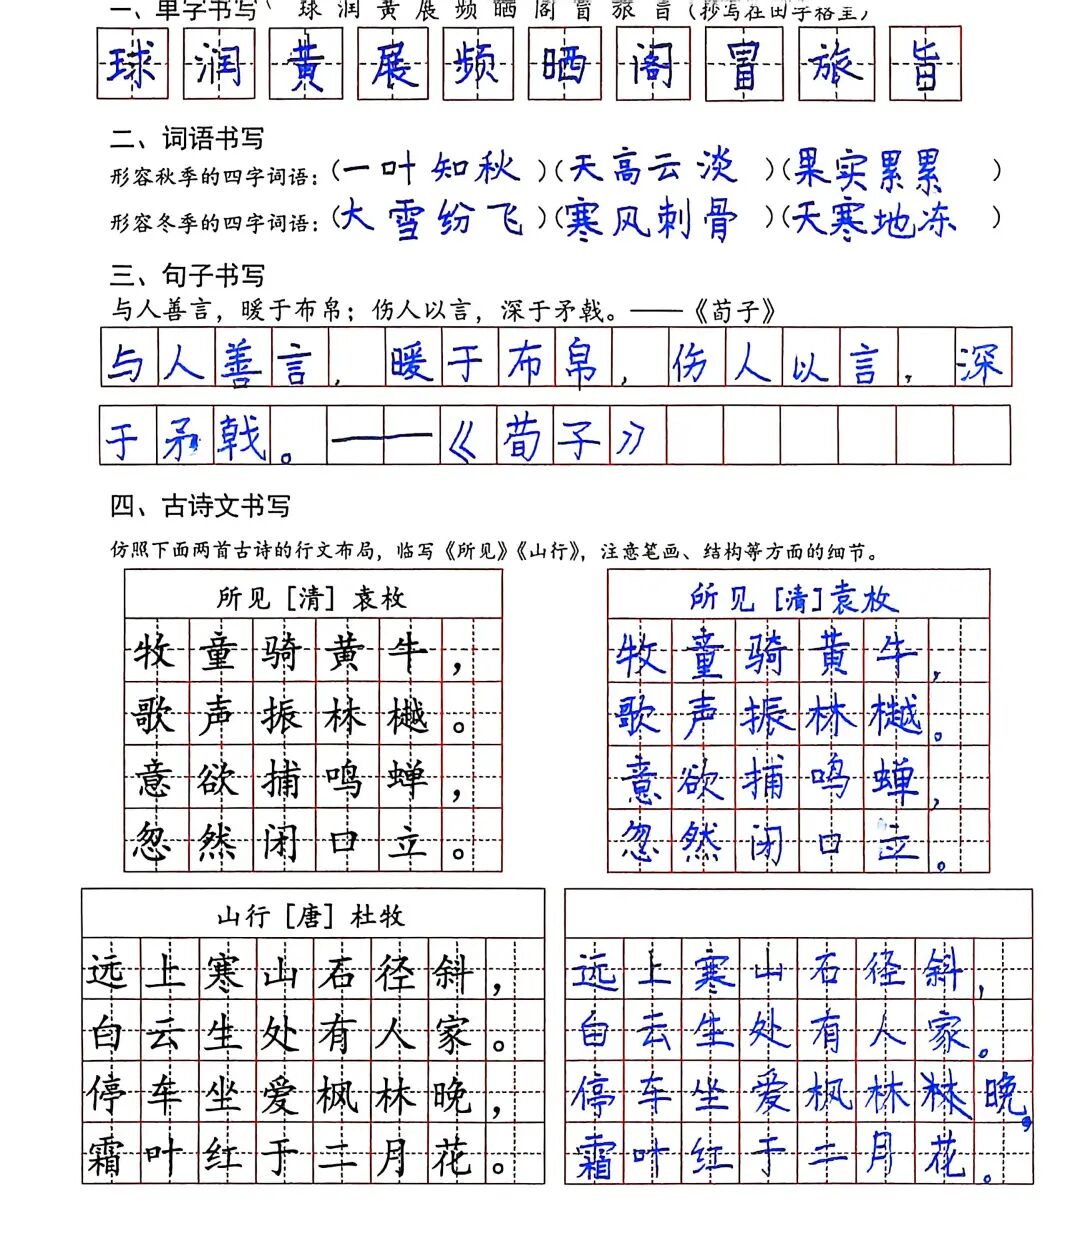 一、单字书写（ 球 润 黄 展 频 晒 阁 冒 旅 旨（抄写在田字格里）
球 润 黄 展 频 晒 阁 冒 旅 旨
二、词语书写
形容秋季的四字词语：（一叶知秋）（天高云淡）（果实累累）
形容冬季的四字词语：（大雪纷飞）（寒风刺骨）（天寒地冻）
三、句子书写
与人善言，暖于布帛；伤人以言，深于矛戟。——《荀子》
与人善言，暖于布帛，伤人以言，深
于矛戟。——《荀子》
四、古诗文书写
仿照下面两首古诗的行文布局，临写《所见》《山行》，注意笔画、结构等方面的细节。
所见［清］袁枚
牧童骑黄牛，
歌声振林樾。
意欲捕鸣蝉，
忽然闭口立。
所见［清］袁枚
牧童骑黄牛，
歌声振林樾。
意欲捕鸣蝉，
忽然闭口立。
山行［唐］杜牧
远上寒山石径斜，
白云生处有人家。
停车坐爱枫林晚，
霜叶红于二月花。
远上寒山石径斜，
白云生处有人家。
停车坐爱枫林晚，
霜叶红于二月花。